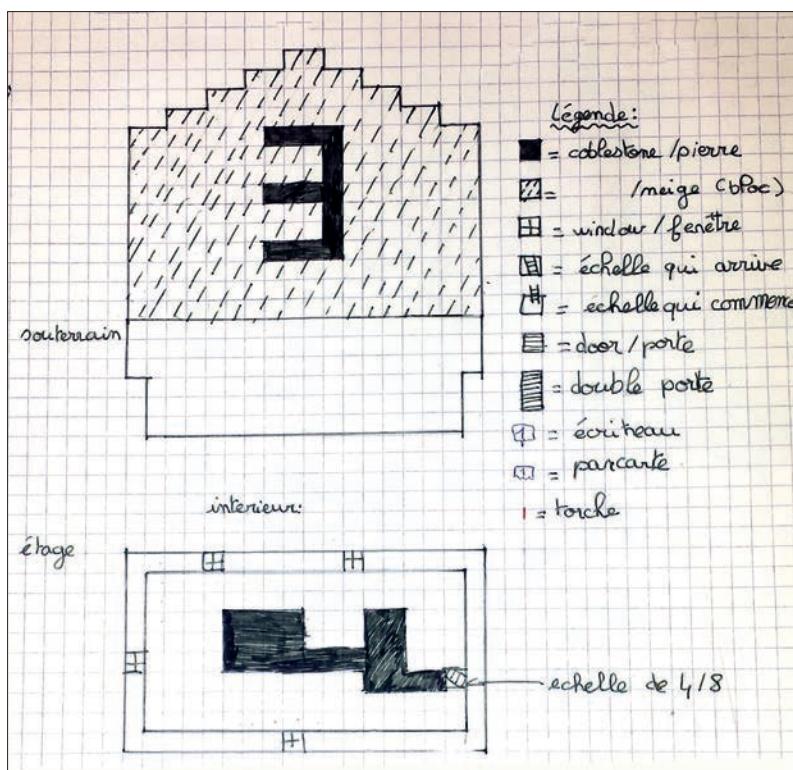 Légende:
= coblestone / pierre
= /neige (bloc)
= window / fenêtre
= échelle qui arrive
= echelle qui commence
= door/porte
= double porte
= écriteau
= pancarte
= torche
souterrain
interieur:
étage
echelle de 4/8